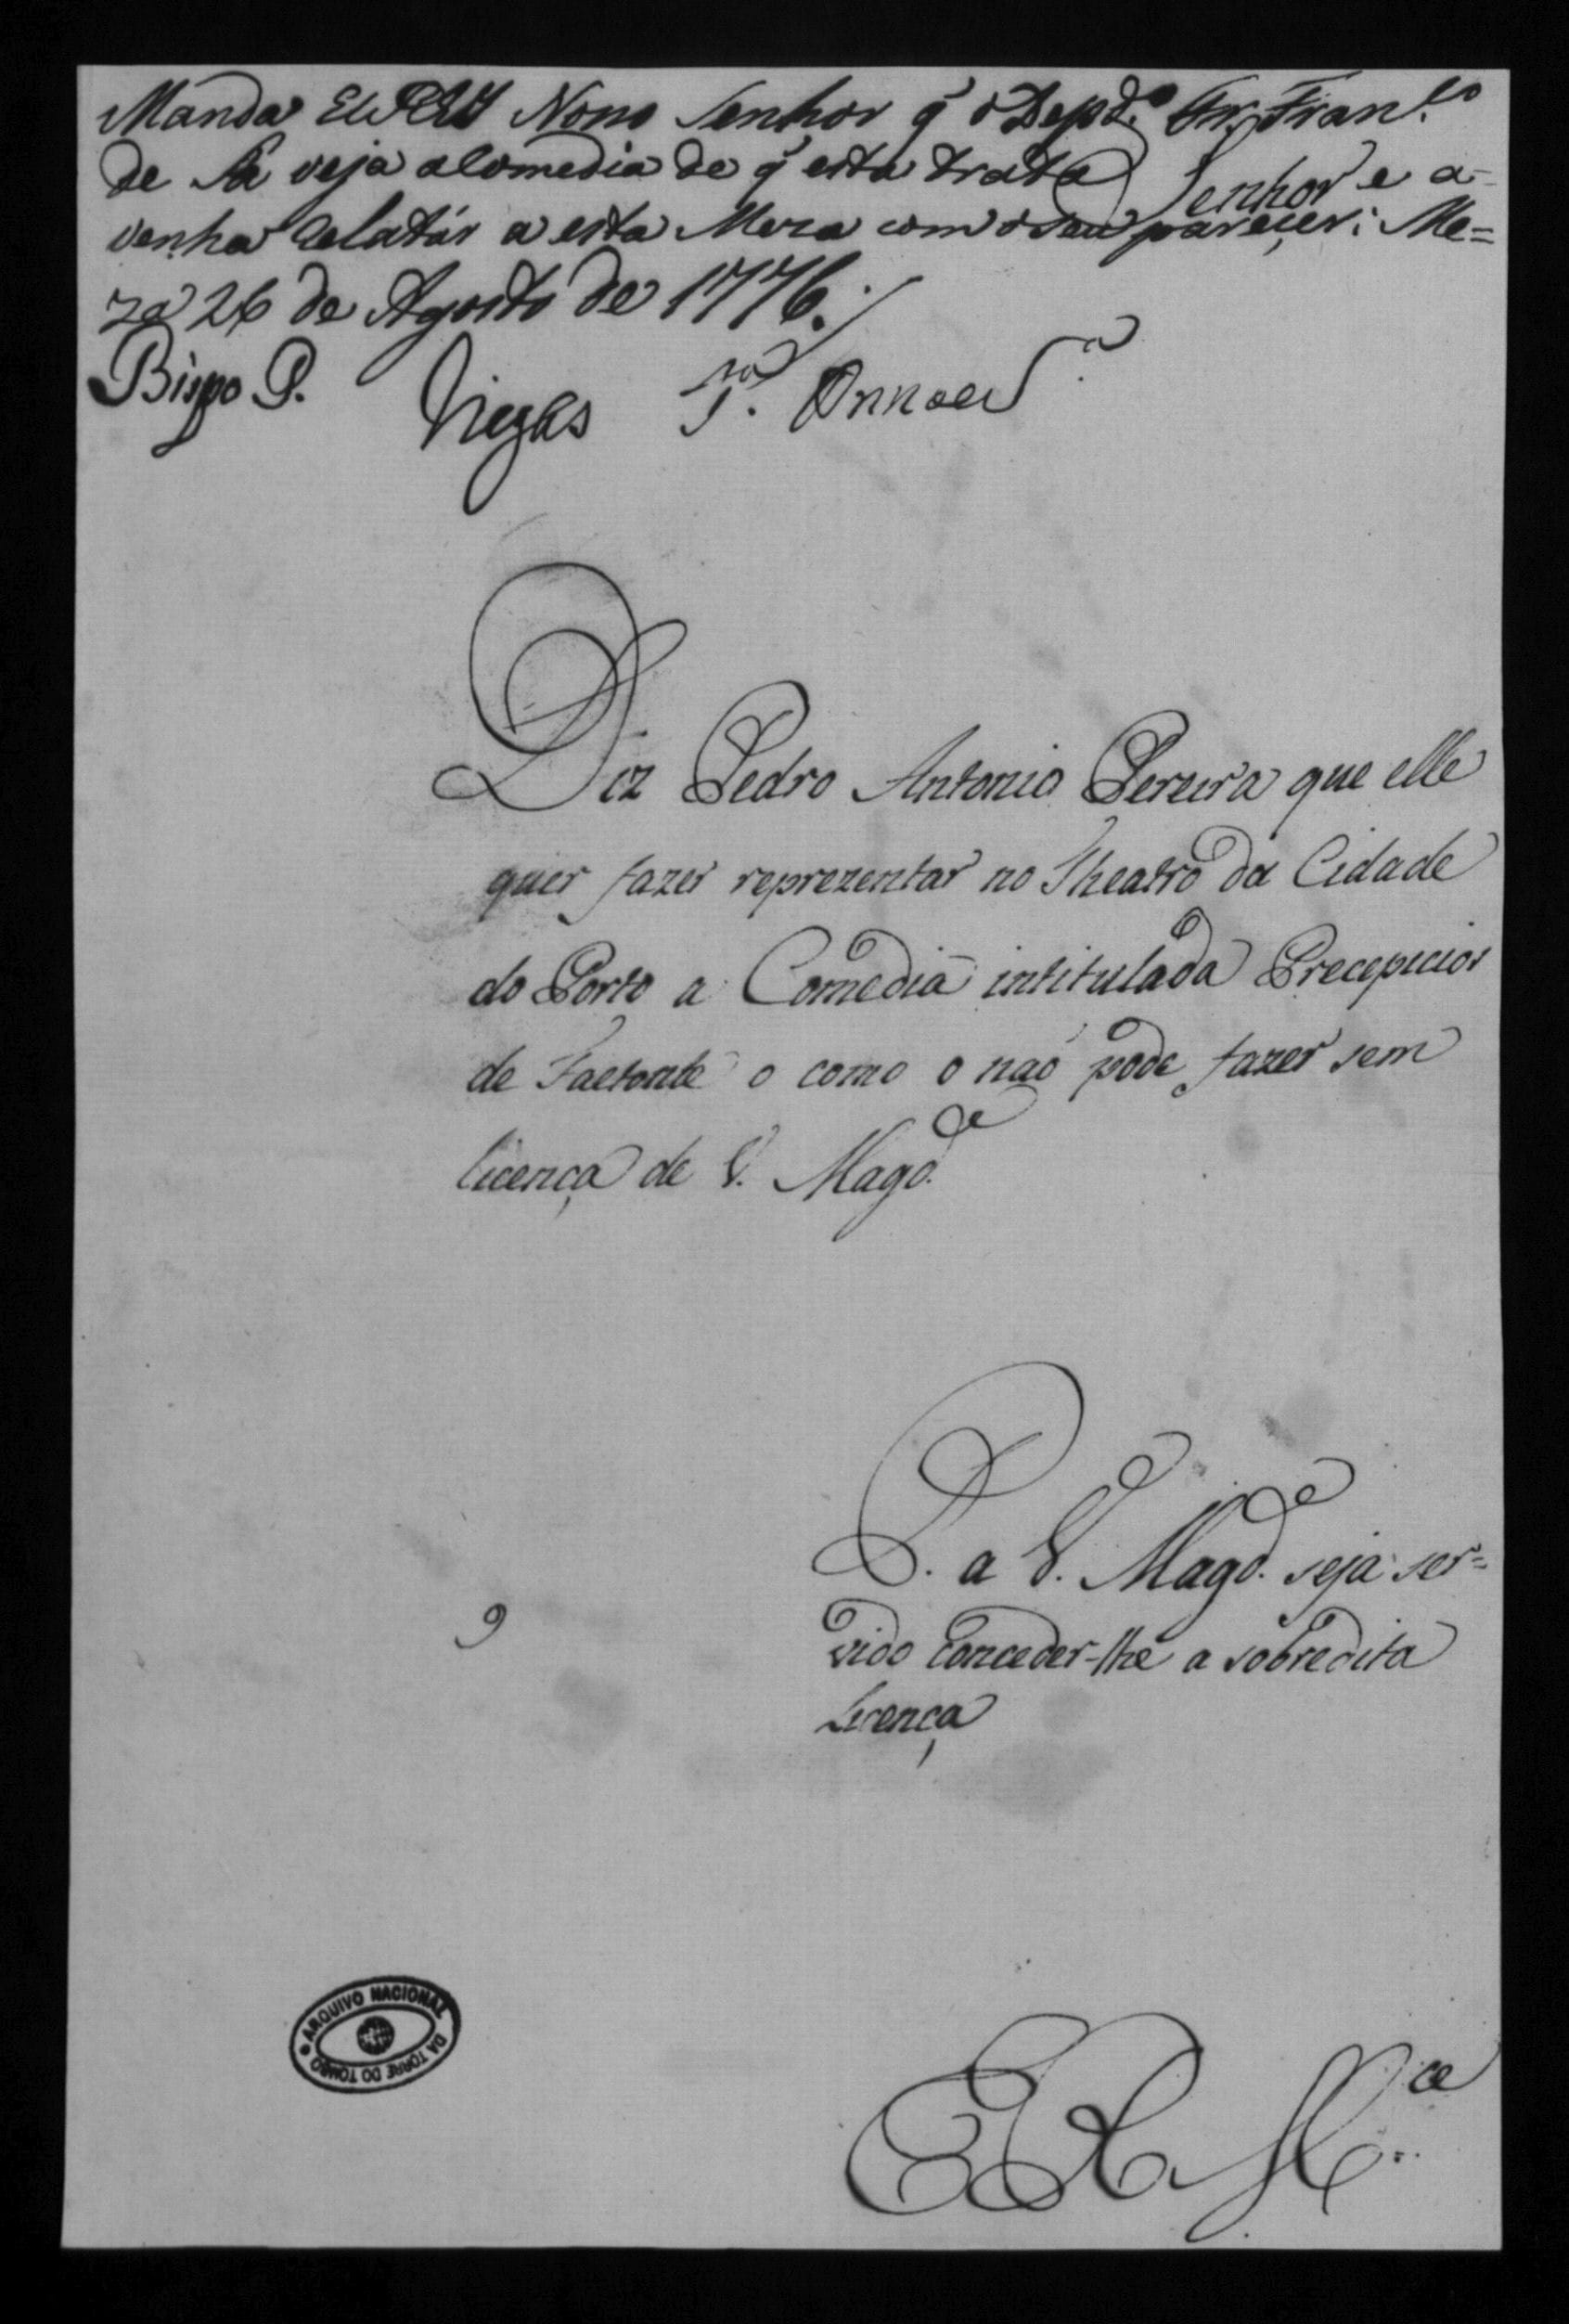 Manda ElREY Nosso Senhor q̃ o Dep.do Fr. Fran.co
de Sá veja a Comedia de q̃ esta trata e a
Senhor
venha relatár a esta Meza com o seu parecer: Me=
za 26 de Agosto de 1776.
Bispo P.
Diz Pedro Antonio Pereira que elle
quer fazer reprezentar no Theatro da Cidade
do Porto a Comedia intitulada Precepicios
de Faetonte o como o naõ pode fazer sem
licença de V. Magd.e
P. a V. Magd.e seja ser=
vido conceder-lhe a sobredita
Licença
9
ARQUIVO NACIONAL
DA TORRE DO TOMBO
E R M.ce